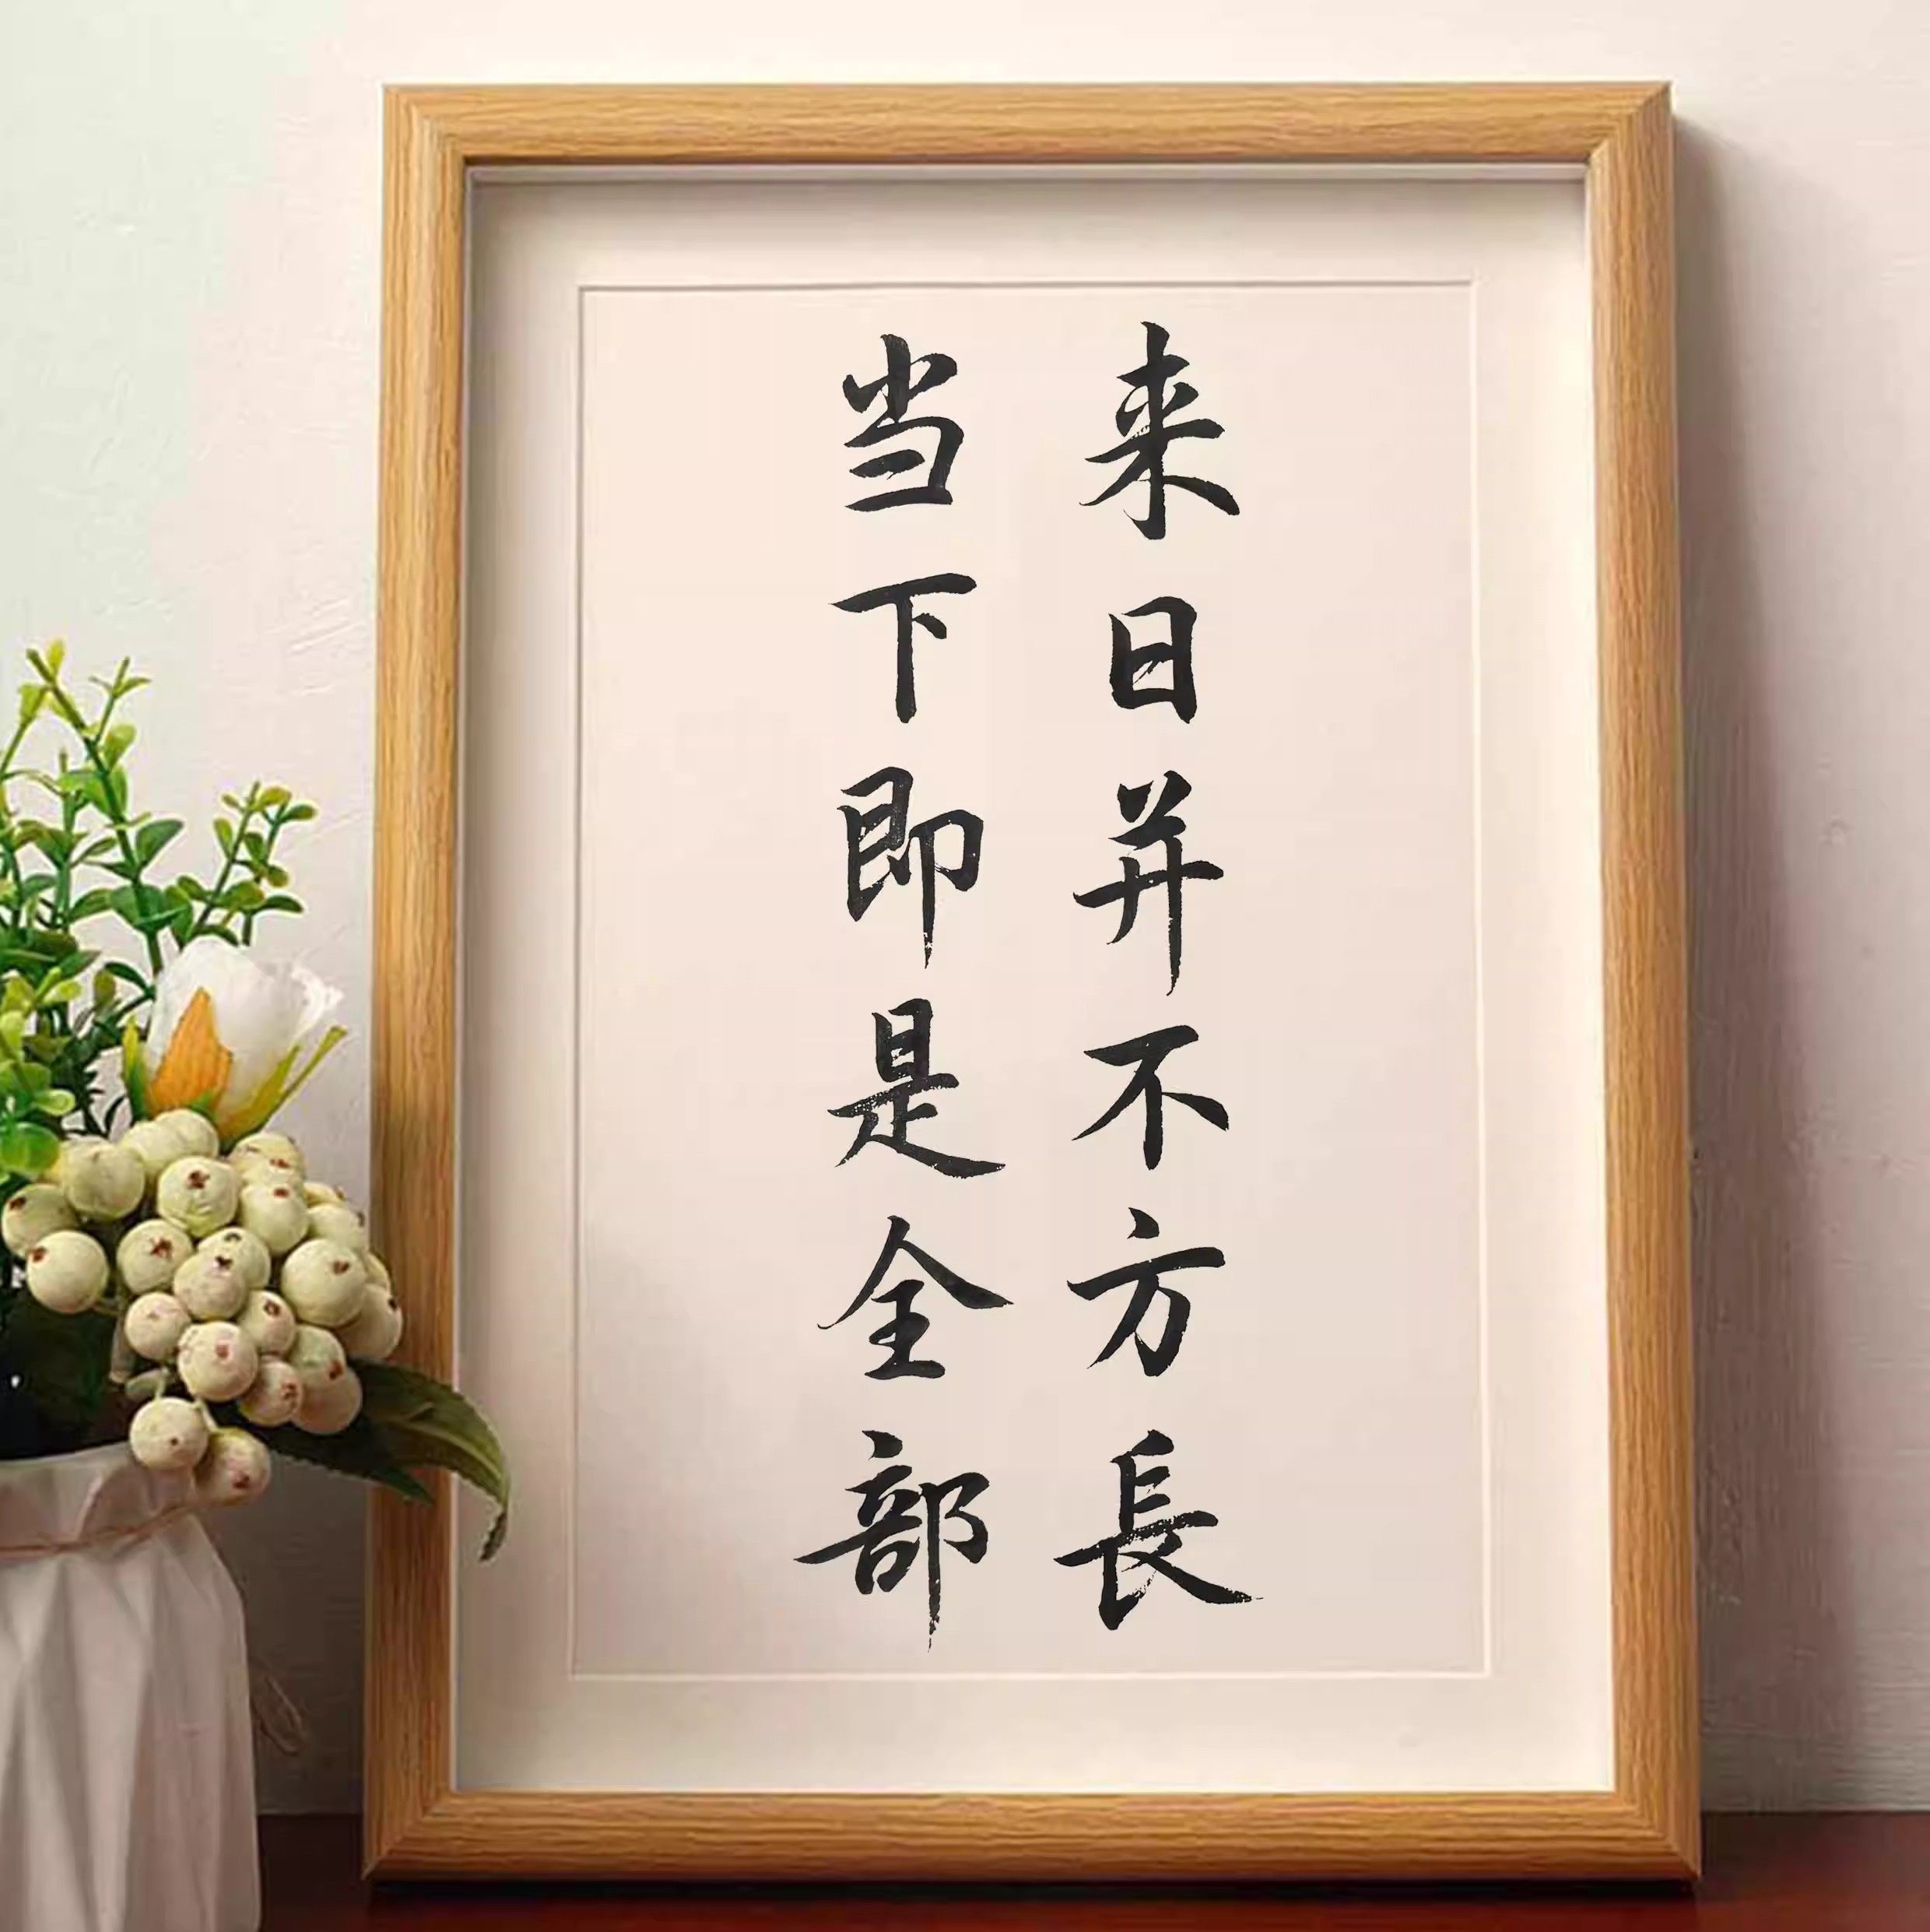 来日并不方長
当下即是全部